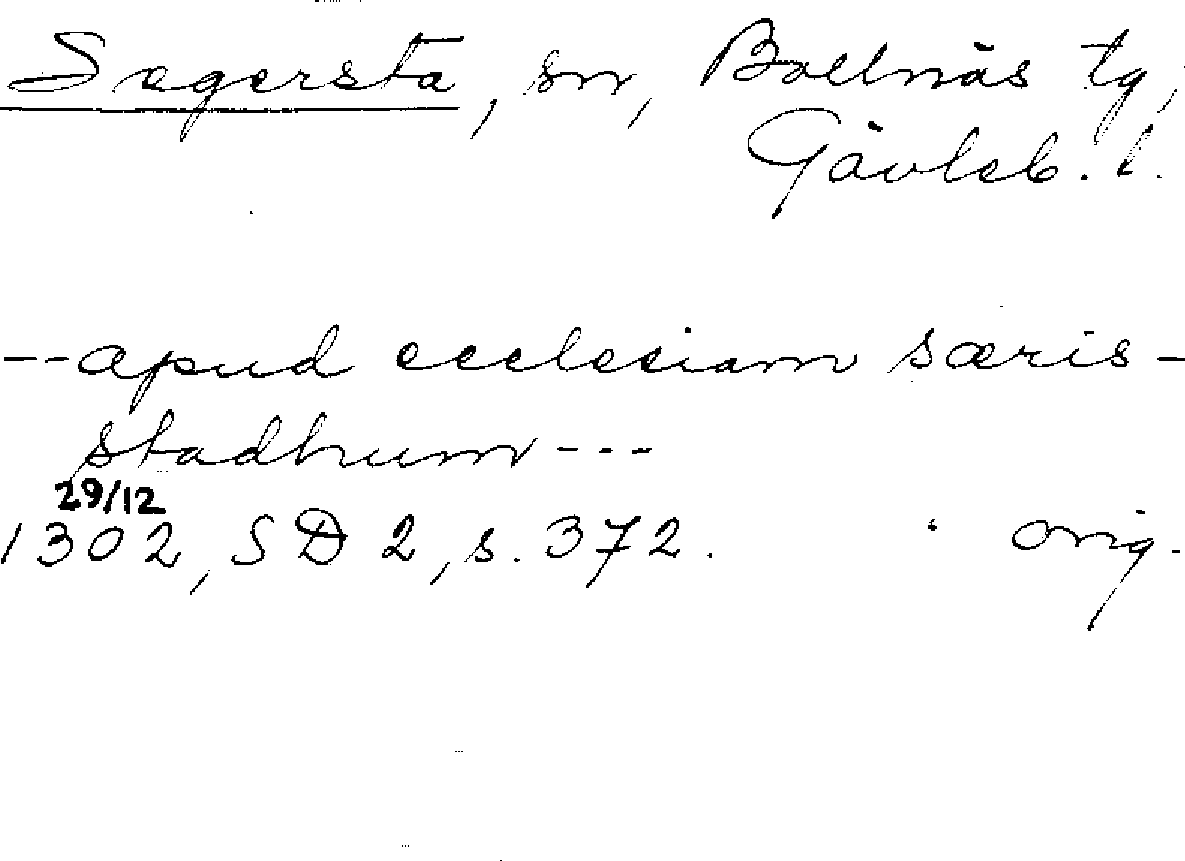 Segersta, sn, Bollnäs tg,
Gävleb. l.
--apud ecclesiam særis-
stadhum---
29/12
1302, SD 2, s. 372. orig.